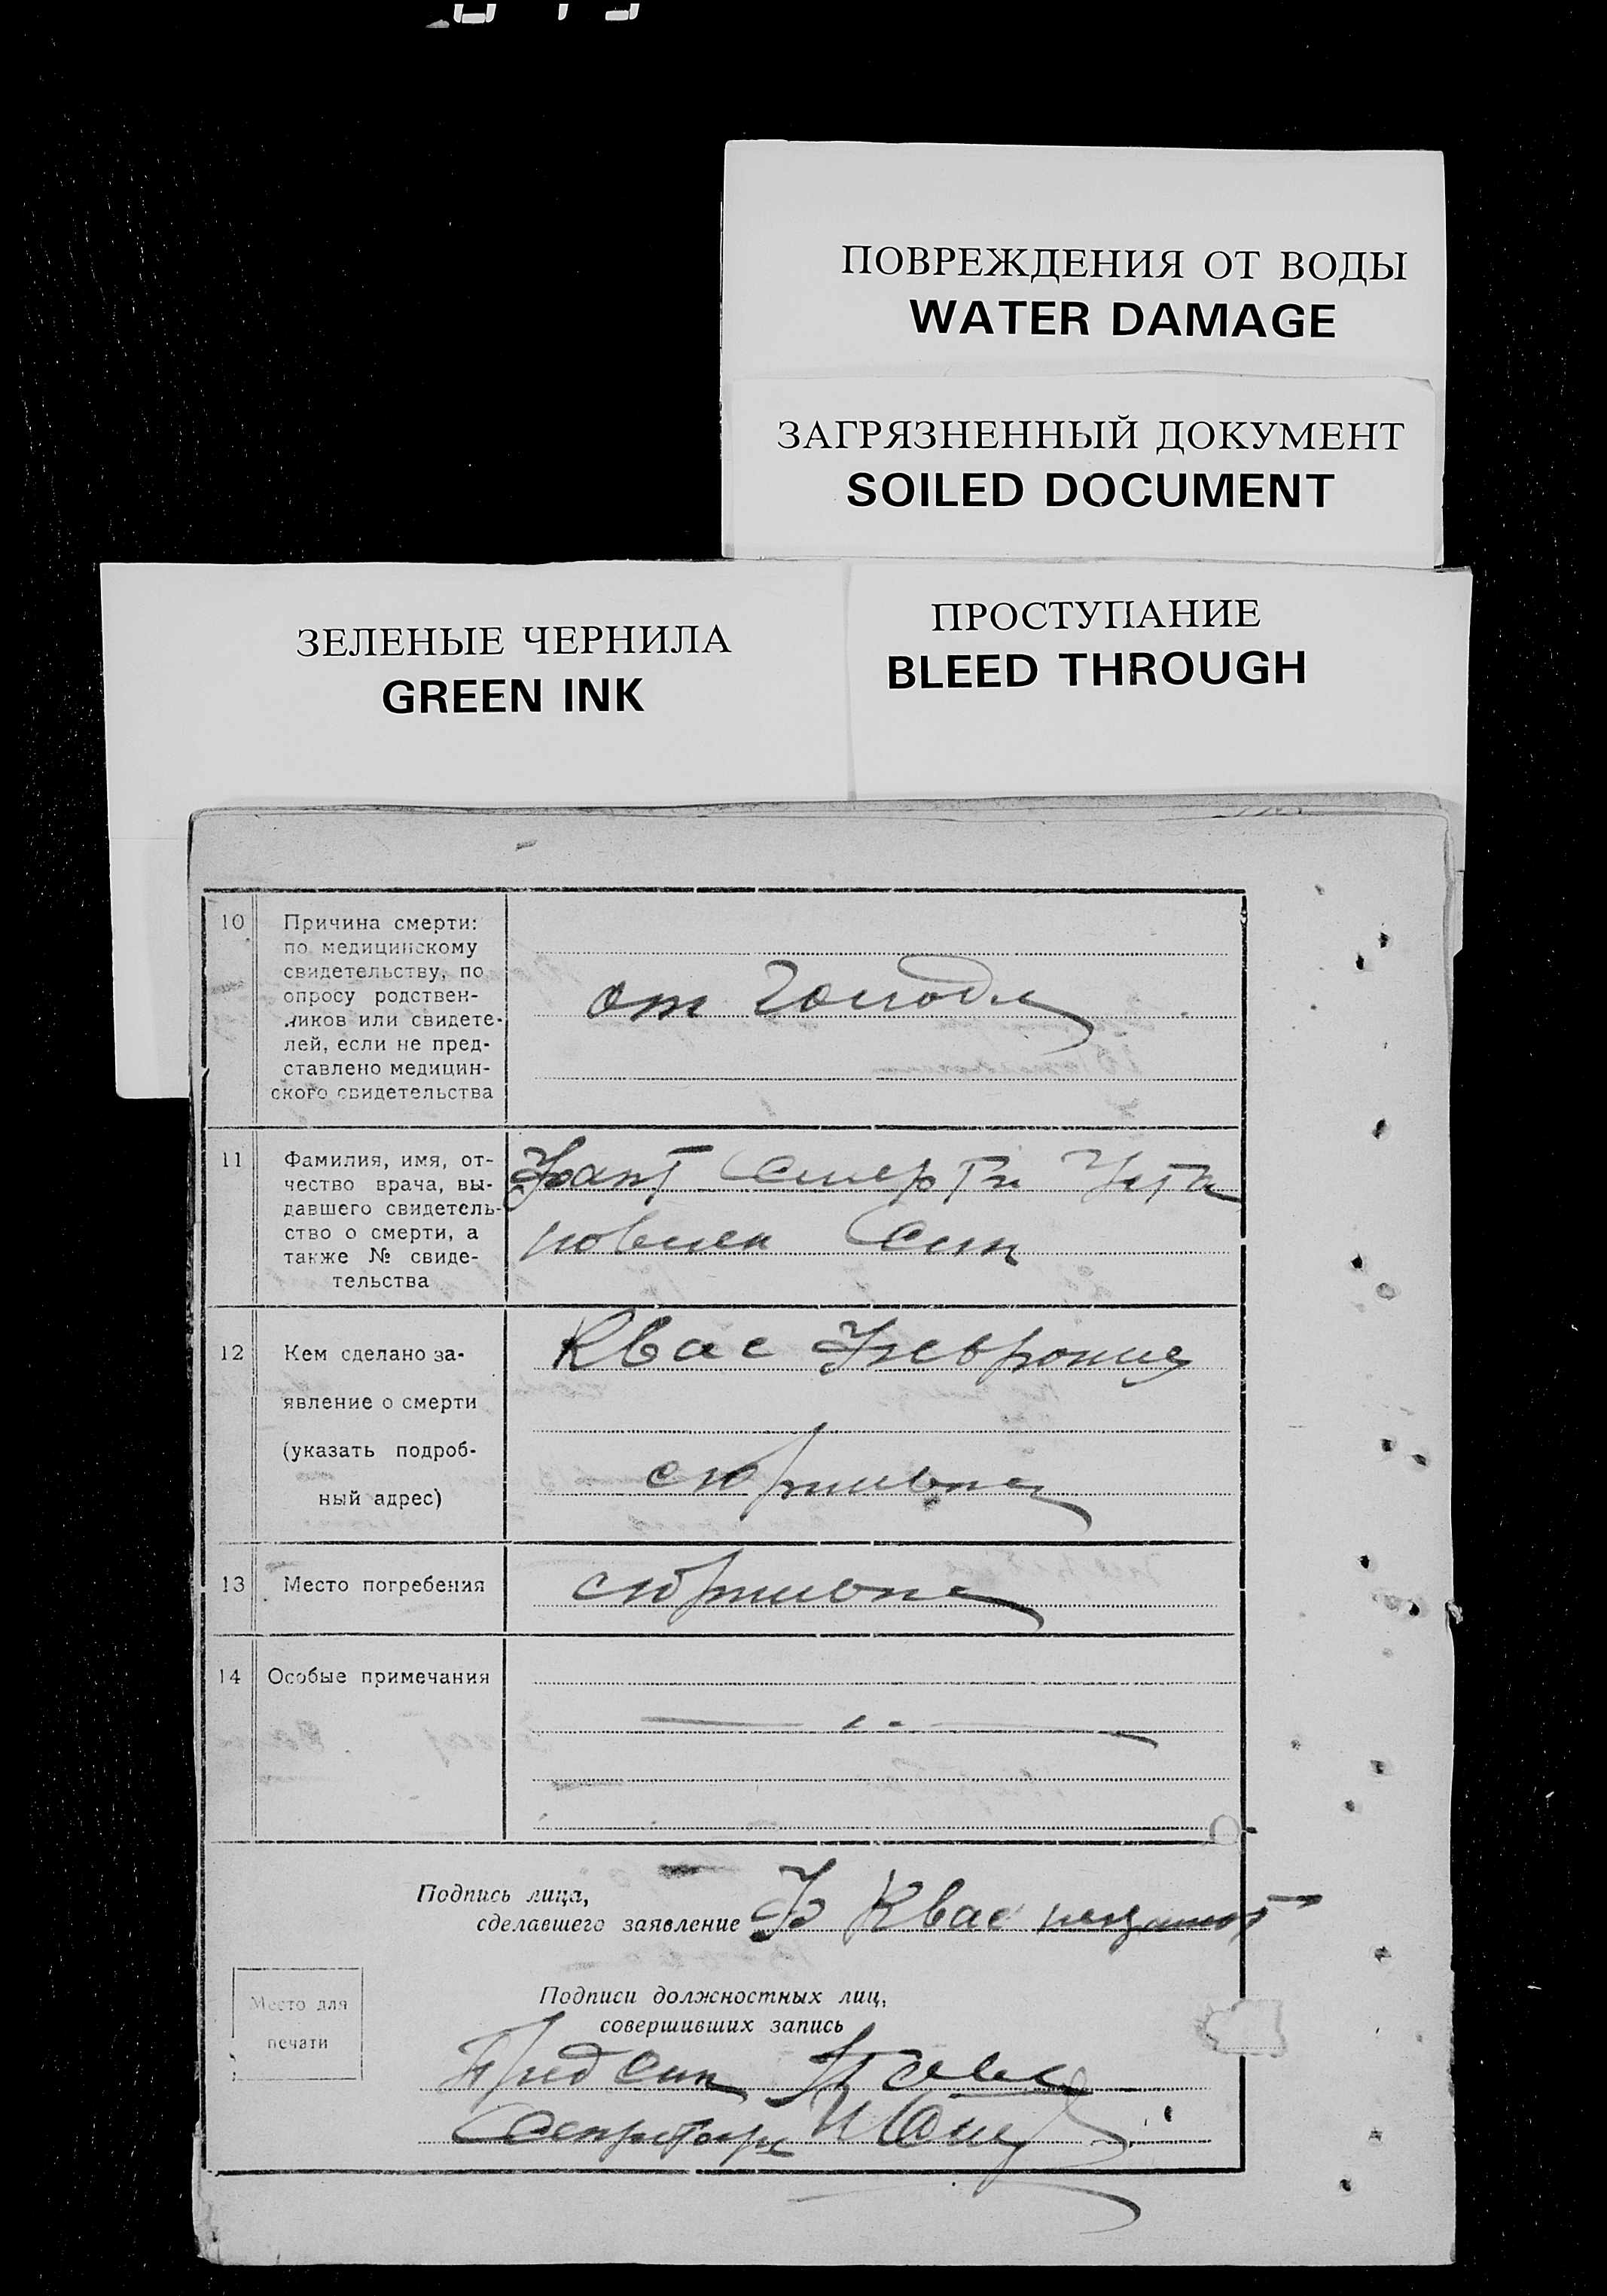 ПОВРЕЖДЕНИЯ ОТ ВОДЫ
WATER DAMAGE
ЗАГРЯЗНЕННЫЙ ДОКУМЕНТ
SOILED DOCUMENT
ЗЕЛЕНЫЕ ЧЕРНИЛА
GREEN INK
ПРОСТУПАНИЕ
BLEED THROUGH
10
Причина смерти:
по медицинскому
свидетельству, по
опросу родствен-
ников или свидете-
лей, если не пред-
ставлено медицин-
ского свидетельства
от голода
11
Фамилия, имя, от-
чество врача, вы-
давшего свидетель-
ство о смерти, а
также № свиде-
тельства
Факт Смерти
12
Кем сделано за-
явление о смерти
(указать подроб-
ный адрес)
Квас
13
Место погребения
14
Особые примечания
Подпись лица,
сделавшего заявление
Ф Квас
Подписи должностных лиц,
совершивших запись
Место для
печати
Секретарь